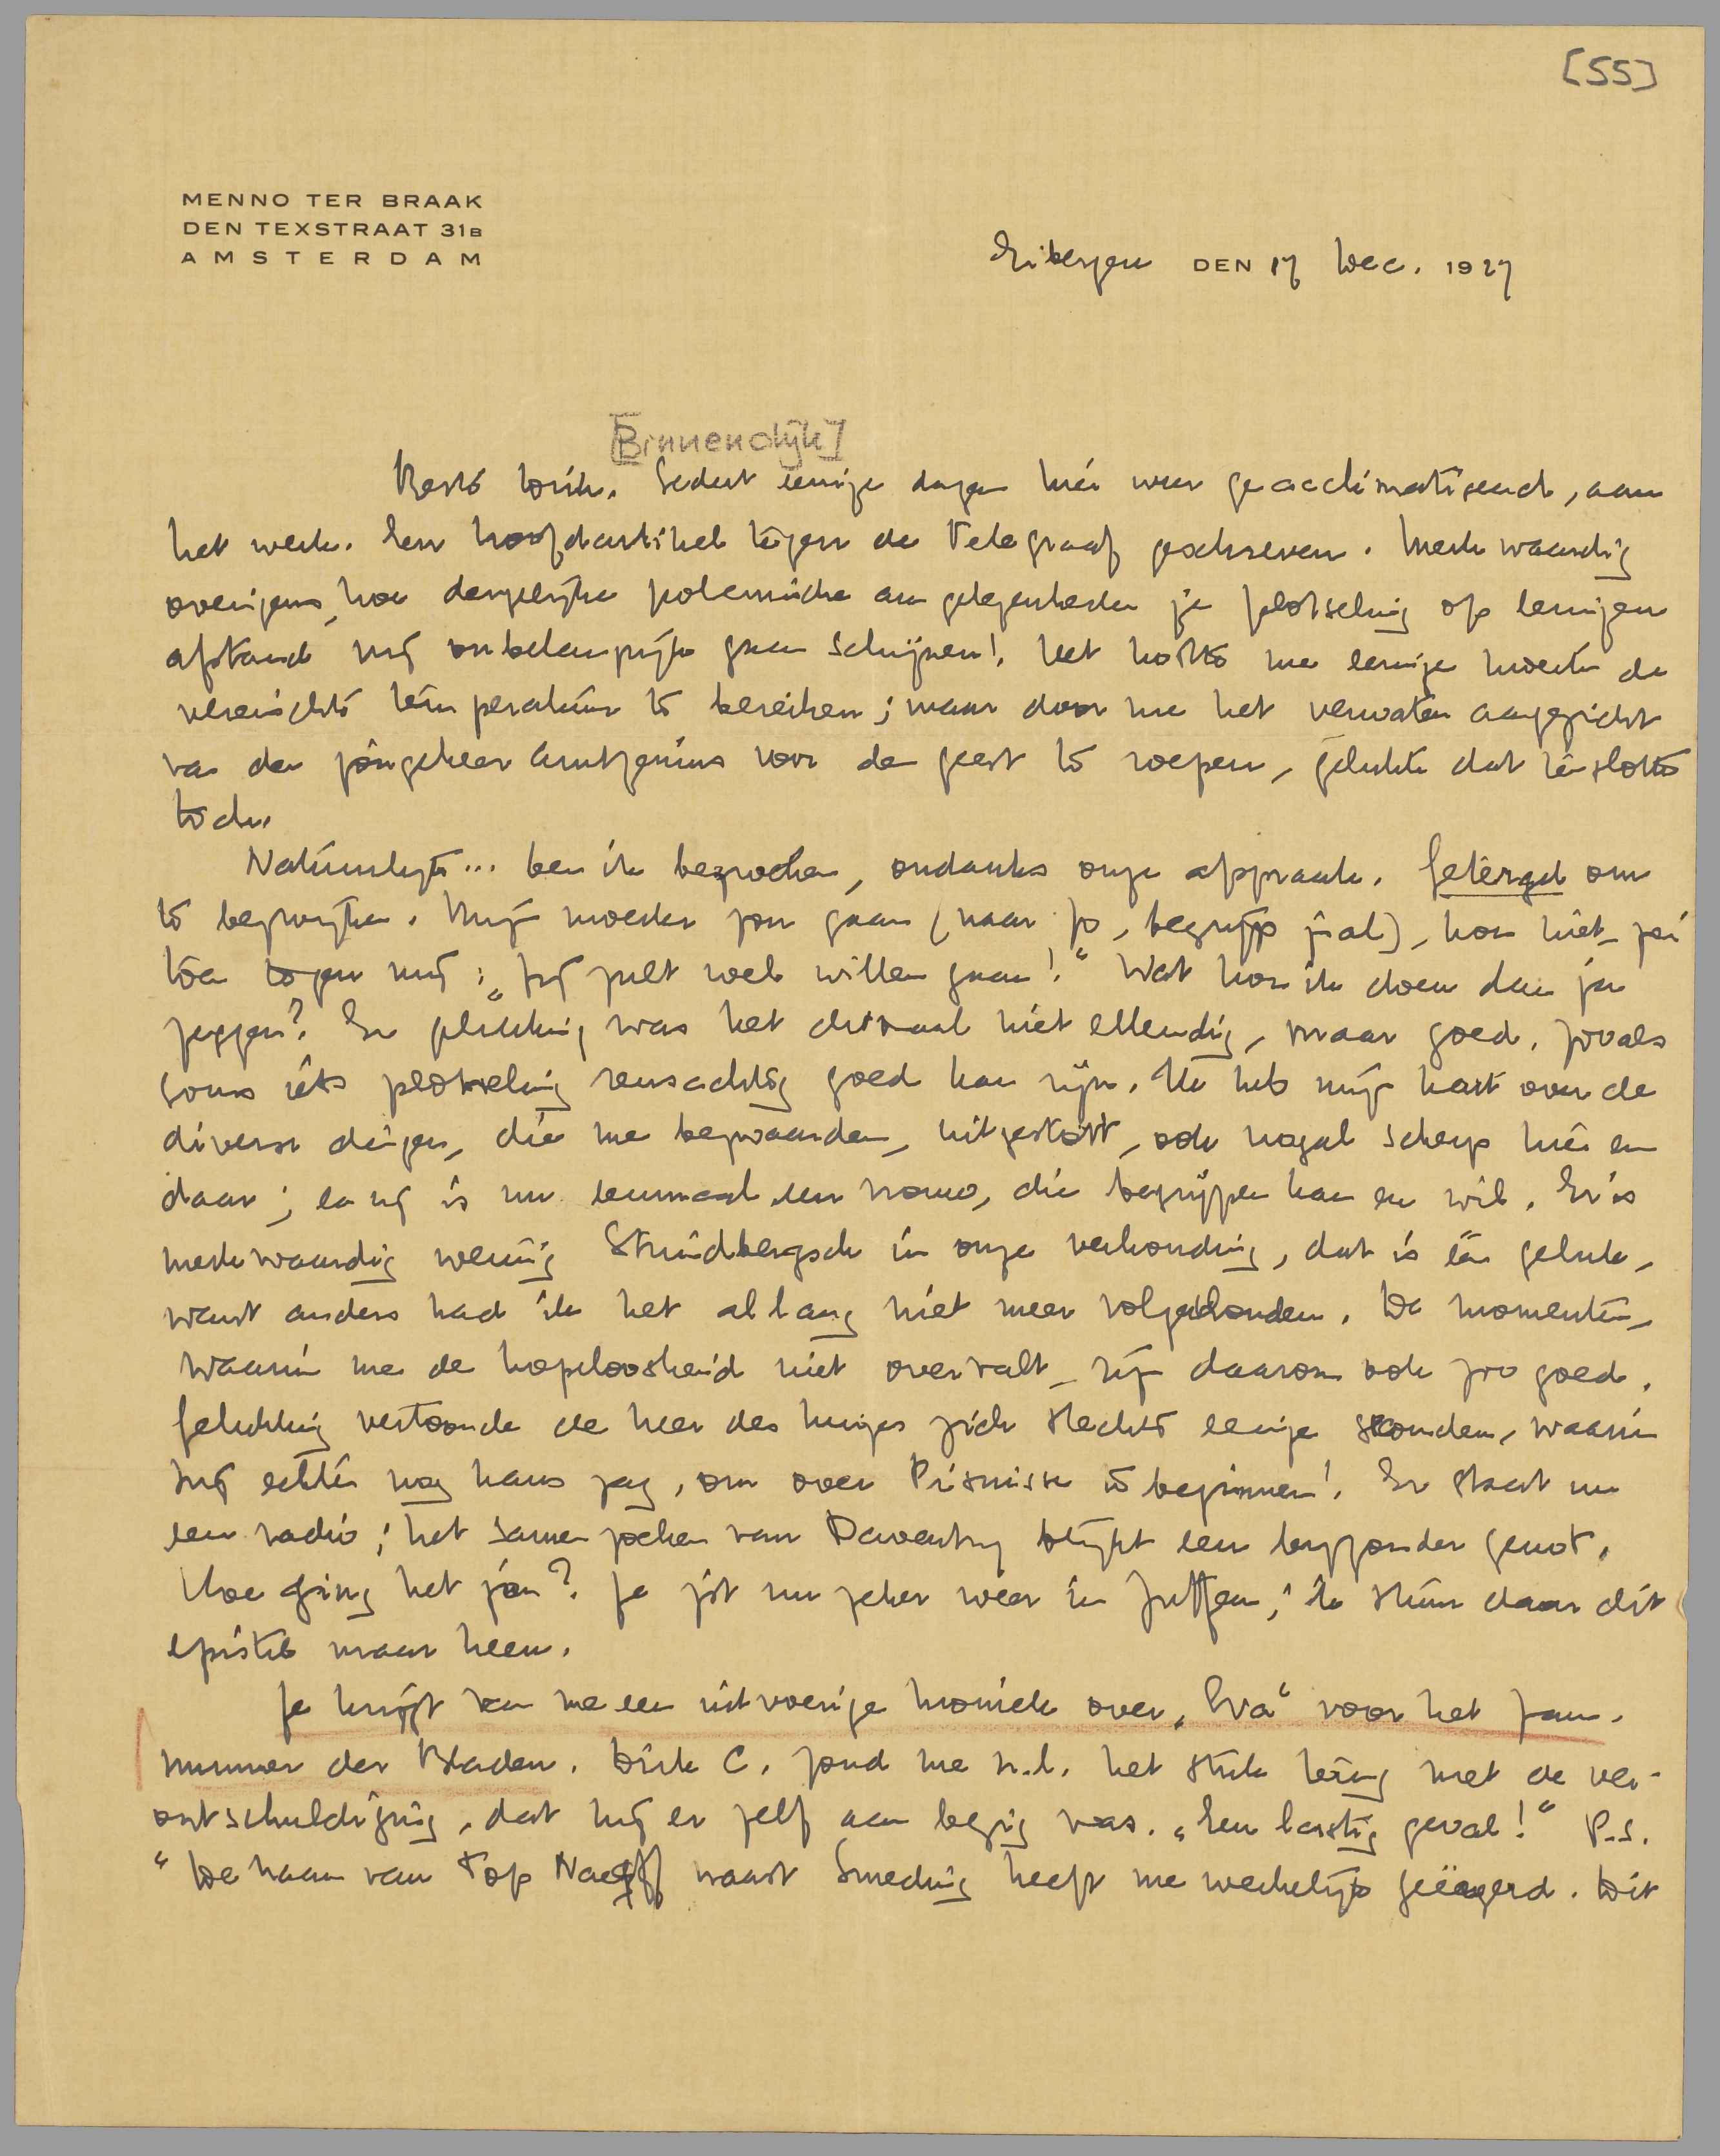 [55]
MENNO TER BRAAK
DEN TEXSTRAAT 31B
AMSTERDAM
Eibergen DEN 17 Dec. 1927
[Binnendijk]
Beste Dick. Sedert eenige dagen hier weer geacclimatiseerd, aan
het werk. Een hoofdartikel tegen de Telegraaf geschreven. Merkwaardig
overigens, hoe dergelijke polemische aangelegenheden je plotseling op eenigen
afstand vrij onbelangrijk gaan schijnen! Het kostte me eenige moeite de
vereischte temperatuur te bereiken; maar door me het verwaten aangezicht
van den jongeheer Arntzenius voor de geest te roepen, gelukte dat tenslotte
toch.
Natuurlijk... ben ik bezweken, ondanks onze afspraak. Getergd om
te bezwijken. Mijn moeder zou gaan (naar Jo, begrijp je al), kon niet, zei
toen tegen mij: „Jij zult wel willen gaan!" Wat kon ik doen dan ja
zeggen? En gelukkig was het ditmaal niet ellendig, maar goed, zooals
soms iets plotseling reusachtig goed kan zijn. Ik heb mijn hart over de
diverse dingen, die me bezwaarden, uitgestort, ook nogal scherp hier en
daar; en zij is nu eenmaal een vrouw, die begrijpen kan en wil. Er is
merkwaardig weinig Strindbergsch in onze verhouding, dat is één geluk,
want anders had ik het al lang niet meer volgehouden. De momenten,
waarin me de hopeloosheid niet overvalt, zijn daarom ook zoo goed.
Gelukkig vertoonde de heer des huizes zich slechts eenige seconden, waarin
hij echter nog kans zag, om over Prisnisse te beginnen! Er staat nu
een radio; het samen zoeken van Daventry blijft een bijzonder genot.
Hoe ging het jou? Je zit nu zeker weer in Zutfen; ik stuur daar dit
epistel maar heen.
Je krijgt van me een uitvoerige kroniek over „Eva" voor het Jan.
nummer der Bladen. Dirk C. zond me n.l. het stuk terug met de ver-
ontschuldiging, dat hij er zelf aan bezig was. „Een lastig geval!" P.S.
" De naam van Top Naeff naast Smeding heeft me werkelijk geërgerd. Dit